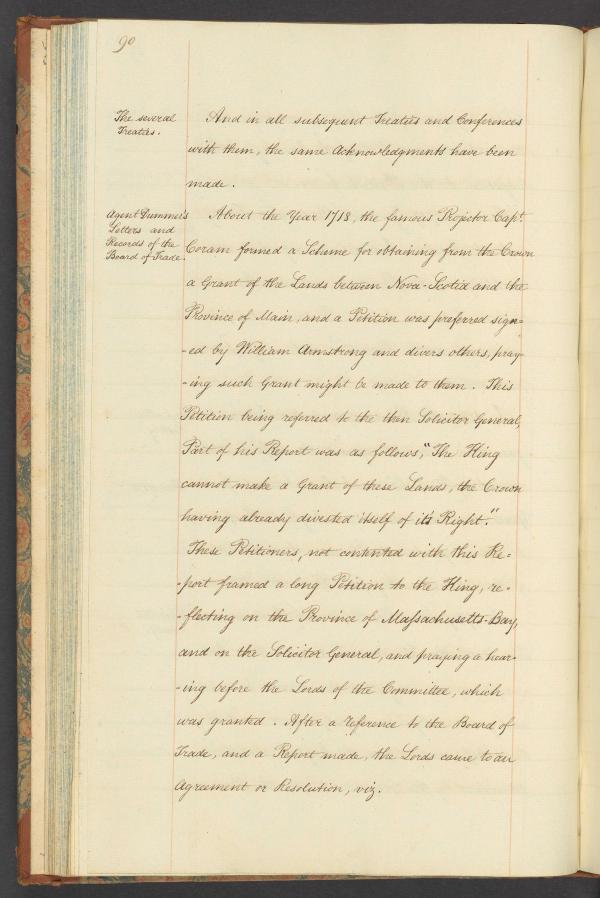 90
The several
Treaties.
And in all subsequent Treaties and Conferences
with them, the same Acknowledgments have been
made.
Agent Dummer's
Letters and
Records of the
Board of Trade.
About the Year 1718, the famous Projector Capt.
Coram formed a Scheme for obtaining from the Crown
a Grant of the Lands between Nova-Scotia and the
Province of Main, and a Petition was preferred sign=
-ed by William Armstrong and divers others, pray-
-ing such Grant might be made to them. This
Petition being referred to the then Solicitor General,
Part of his Report was as follows, "The King
cannot make a Grant of these Lands, the Crown
having already divested itself of it's Right."
These Petitioners, not contented with this Re=
-port framed a long Petition to the King, re-
-flecting on the Province of Massachusetts-Bay,
and on the Solicitor General, and praying a hear-
-ing before the Lords of the Committee, which
was granted. After a reference to the Board of
Trade, and a Report made, the Lords came to an
Agreement or Resolution, viz.